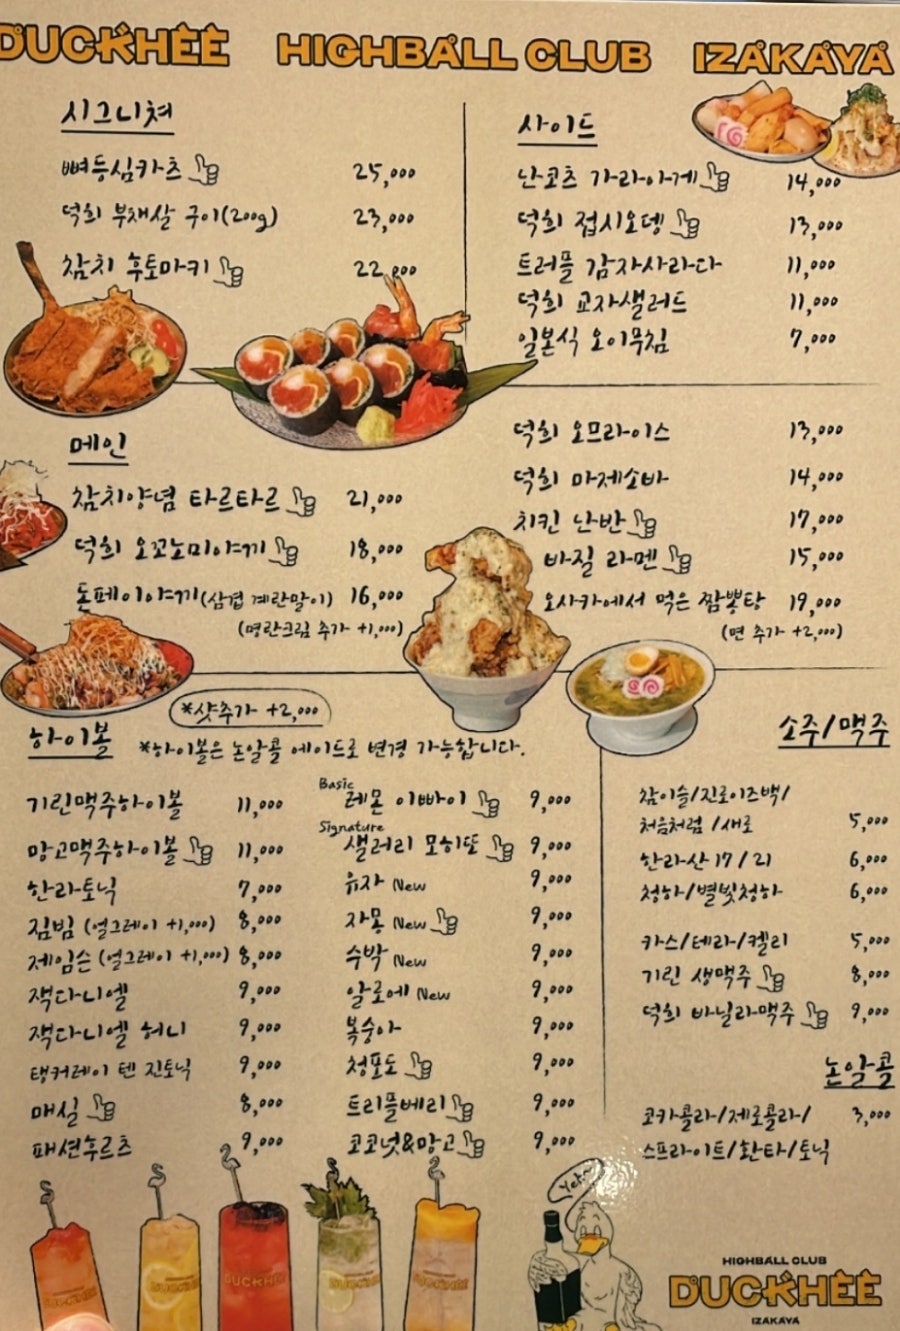 DUCKHEE HIGHBALL CLUB IZAKAYA
시그니쳐
뼈등심카츠 25,000
덕희 부채살 구이(200g) 23,000
참치 후토마키 22,000
사이드
난코츠 가라아게 14,000
덕희 접시오뎅 13,000
트러플 감자사라다 11,000
덕희 교자샐러드 11,000
일본식 오이무침 7,000
메인
참치양념 타르타르 21,000
덕희 오꼬노미야끼 18,000
돈페이야끼(삼겹 계란말이) 16,000
(명란크림 추가 +1,000)
덕희 오므라이스 13,000
덕희 마제소바 14,000
치킨 난반 17,000
바질 라멘 15,000
오사카에서 먹은 짬뽕탕 19,000
(면 추가 +2,000)
하이볼
*샷추가 +2,000
*하이볼은 논알콜 에이드로 변경 가능합니다.
기린맥주하이볼 11,000
망고맥주하이볼 11,000
한라토닉 7,000
짐빔 (얼그레이 +1,000) 8,000
제임슨 (얼그레이 +1,000) 8,000
잭다니엘 9,000
잭다니엘 허니 9,000
탱커레이 텐 진토닉 9,000
매실 8,000
패션후르츠 9,000
Basic
레몬 이빠이 9,000
Signature
샐러리 모히또 9,000
유자 New 9,000
자몽 New 9,000
수박 New 9,000
알로에 New 9,000
복숭아 9,000
청포도 9,000
트리플베리 9,000
코코넛&망고 9,000
소주/맥주
참이슬/진로이즈백/
처음처럼/새로 5,000
한라산 17/21 6,000
청하/별빛청하 6,000
카스/테라/켈리 5,000
기린 생맥주 8,000
덕희 바닐라맥주 9,000
논알콜
코카콜라/제로콜라/ 3,000
스프라이트/환타/토닉
DUCKHEE
HIGHBALL CLUB
DUCKHEE
IZAKAYA